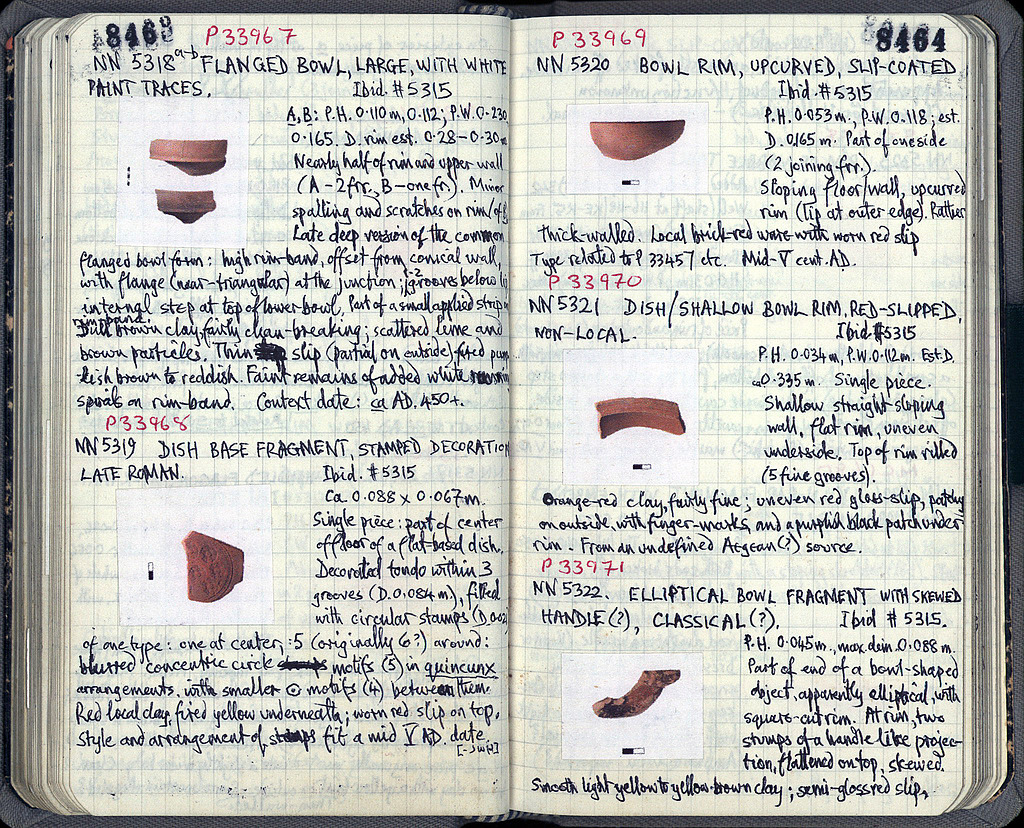 8463
P 33967
NN 5318 a-b FLANGED BOWL, LARGE, WITH WHITE
PAINT TRACES. Ibid. #5315
A, B: P.H. 0.110 m, 0.112; P.W. 0.230
0.165. D. rim est. 0.28-0.30m
Nearly half of rim and upper wall
(A - 2 frr., B - one fr.). Minor
spalling and scratches on rim/
Late deep version of the common
flanged bowl form: high rim-band, offset from conical wall,
with flange (near-triangular) at the junction; 1-2 grooves below
internal step at top of lower bowl. Part of a small applied strip on
rim band.
Dull brown clay, fairly clean-breaking; scattered lime and
brown particles. Thin slip (partial on outside) fired
-kish brown to reddish. Faint remains of added white
spirals on rim-band. Context date: ca AD. 450+.
P33968
NN 5319 DISH BASE FRAGMENT, STAMPED DECORATION
LATE ROMAN. Ibid. #5315
Ca. 0.088 x 0.067m.
Single piece: part of center
of floor of a flat-based dish.
Decorated tondo within 3
grooves (D. 0.084m), filled
with circular stamps (D.
of one type: one at center, 5 (originally 6?) around:
blurred concentric circle motifs (5) in quincunx
arrangements, with smaller ⊙ motifs (4) between them.
Red local clay, fired yellow underneath; worn red slip on top.
Style and arrangement of stamps fit a mid V AD. date.
[-JWH]
8464
P 33969
NN 5320 BOWL RIM, UPCURVED, SLIP-COATED
Ibid. #5315
P.H. 0.053m., P.W. 0.118; est.
D. 0.165 m. Part of one side
(2 joining frr.).
Sloping floor/wall, upcurved
rim (lip at outer edge). Rather
thick-walled. Local brick-red ware with worn red slip
Type related to P 33457 etc. Mid-V cent. AD.
P 33970
NN 5321 DISH/SHALLOW BOWL RIM, RED-SLIPPED,
NON-LOCAL. Ibid #5315
P.H. 0.034m, P.W. 0.112m. Est. D.
ca 0.335 m. Single piece.
Shallow straight-sloping
wall, flat rim, uneven
underside. Top of rim rilled
(5 fine grooves).
Orange-red clay, fairly fine; uneven red gloss-slip, patchy
on outside, with finger-marks, and a purplish black patch under
rim. From an undefined Aegean (?) source.
P33971
NN 5322. ELLIPTICAL BOWL FRAGMENT WITH SKEWED
HANDLE(?), CLASSICAL(?). Ibid #5315.
P.H. 0.045m., max. dim. 0.088 m.
Part of end of a bowl-shaped
object, apparently elliptical, with
square-cut rim. At rim, two
stumps of a handle-like projec-
tion, flattened on top, skewed.
Smooth light yellow to yellow-brown clay; semi-gloss red slip,